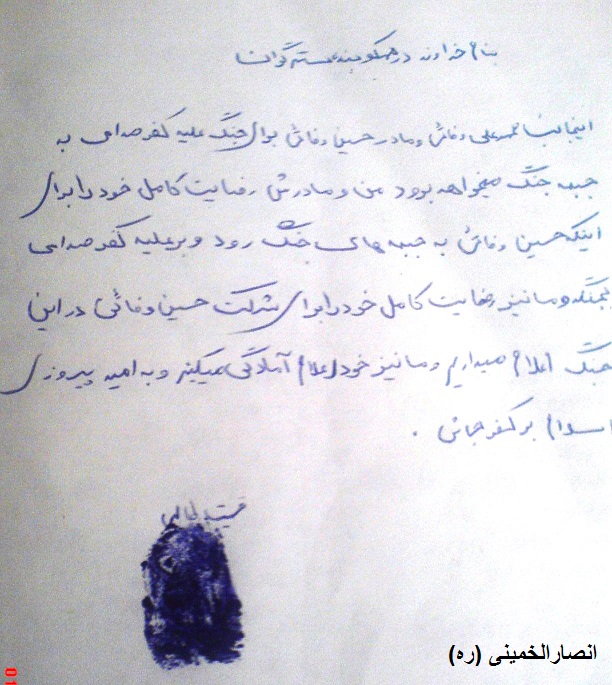 بنام خداوند درهم کوبنده ستمگران
اینجانب محمد علی وفائی و مادر حسین وفائی برای جنگ علیه کفر صدامی به
جبهه جنگ میخواهد برود من و مادرش رضایت کامل خود را برای
اینکه حسین وفائی به جبهه های جنگ رود و بر علیه کفر صدامی
بجنگد و ما نیز رضایت کامل خود را برای شرکت حسین وفائی در این
جنگ اعلام میداریم و ما نیز خود اعلام آمادگی میکنیم و به امید پیروزی
اسلام بر کفر جهانی .
انصارالخمینی (ره)
01